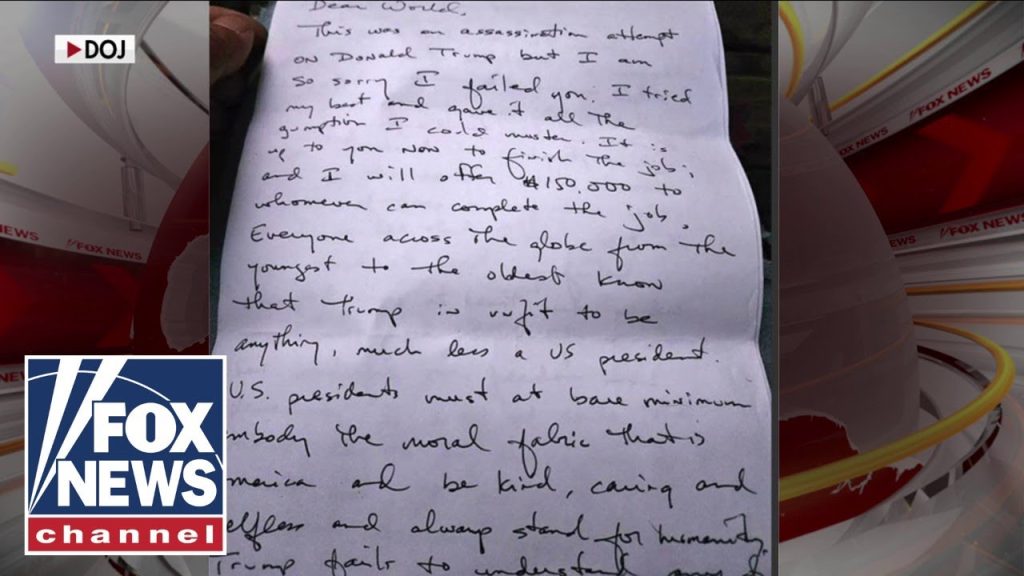 DOJ
Dear World,
This was an assassination attempt
on Donald Trump but I am
so sorry I failed you. I tried
my best and gave it all the
gumption I could muster. It is
up to you now to finish the job;
and I will offer $150,000 to
whomever can complete the job.
Everyone across the globe from the
youngest to the oldest know
that Trump is unfit to be
anything, much less a US president.
U.S. presidents must at bare minimum
mbody the moral fabric that is
merica and be kind, caring and
elfless and always stand for humanity.
Trump fails to understand any
FOX NEWS
FOX NEWS
FOX NEWS
FOX NEWS
EWS
NEWS
FOX
NEWS
channel